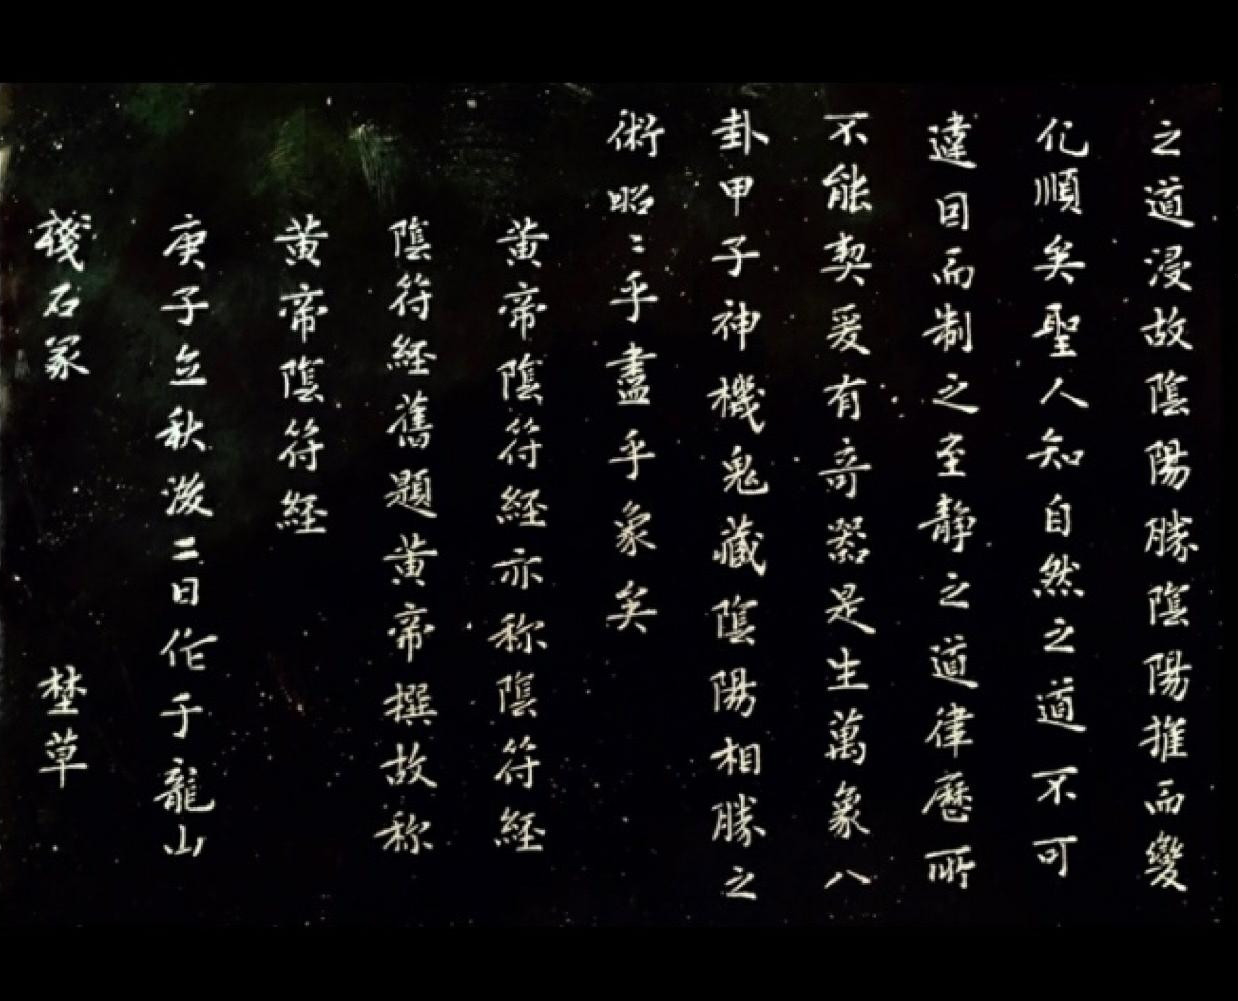 之道浸故陰陽勝陰陽推而變
化順矣聖人知自然之道不可
違因而制之至靜之道律曆所
不能契爰有奇器是生萬象八
卦甲子神機鬼藏陰陽相勝之
術昭〻乎盡乎象矣
黃帝陰符經亦称陰符經
陰符經舊題黃帝撰故称
黃帝陰符經
庚子立秋後二日作于龍山
石冢 埜草